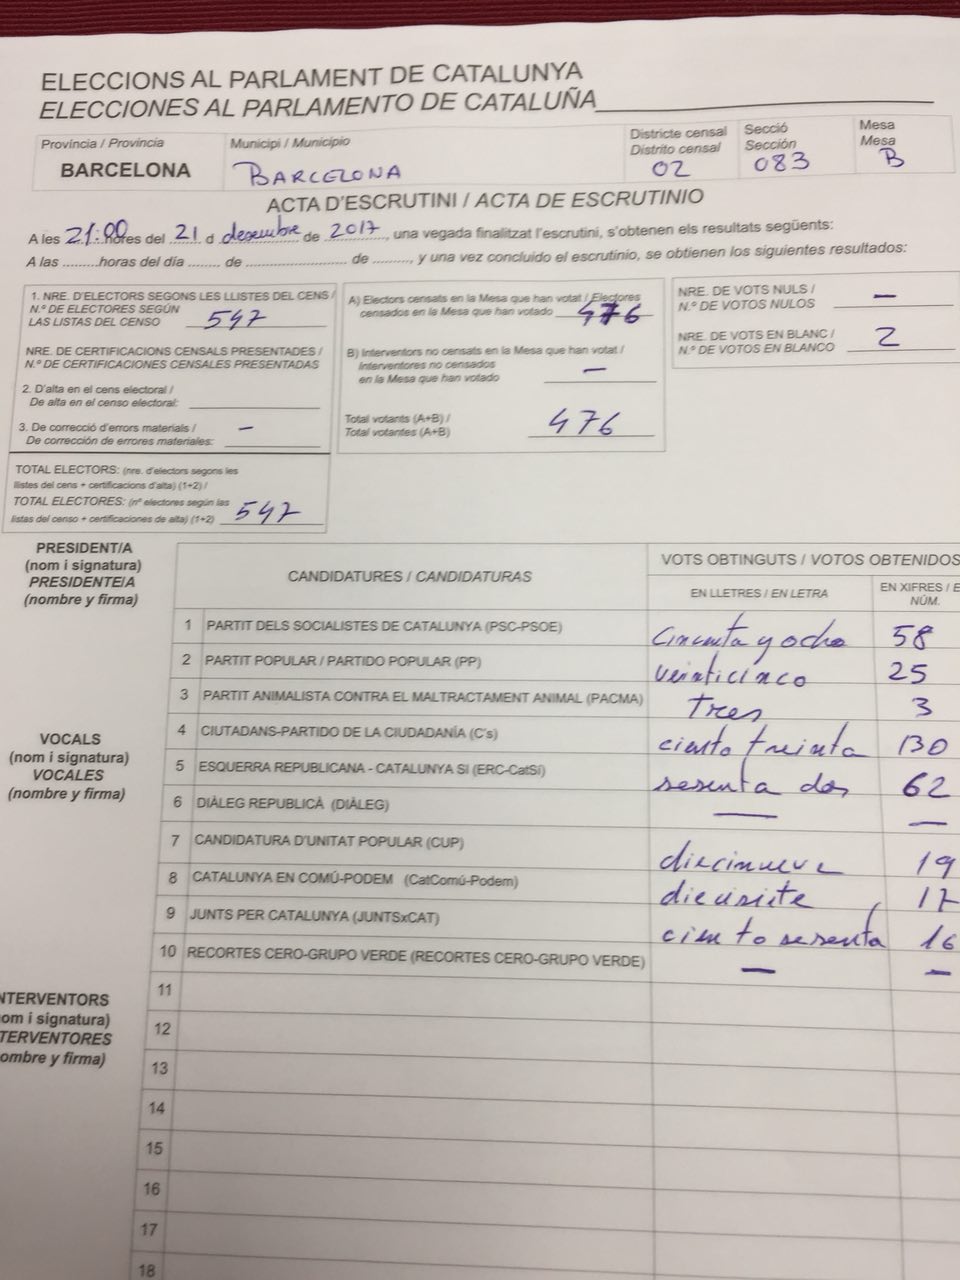 ELECCIONS AL PARLAMENT DE CATALUNYA
ELECCIONES AL PARLAMENTO DE CATALUÑA
Província / Provincia
BARCELONA
Municipi / Municipio
BARCELONA
Districte censal
Distrito censal
02
Secció
Sección
083
Mesa
Mesa
B
ACTA D'ESCRUTINI / ACTA DE ESCRUTINIO
A les 21:00 hores del 21 d desembre de 2017, una vegada finalitzat l'escrutini, s'obtenen els resultats següents:
A las .........horas del día ........ de .......................... de ........., y una vez concluido el escrutinio, se obtienen los siguientes resultados:
1. NRE. D'ELECTORS SEGONS LES LLISTES DEL CENS /
N.º DE ELECTORES SEGÚN
LAS LISTAS DEL CENSO 547
NRE. DE CERTIFICACIONS CENSALS PRESENTADES /
N.º DE CERTIFICACIONES CENSALES PRESENTADAS
2. D'alta en el cens electoral /
De alta en el censo electoral:
3. De correcció d'errors materials / –
De corrección de errores materiales:
TOTAL ELECTORS: (nre. d'electors segons les
llistes del cens + certificacions d'alta) (1+2) /
TOTAL ELECTORES: (nº electores según las
listas del censo + certificaciones de alta) (1+2) 547
A) Electors censats en la Mesa que han votat / Electores
censados en la Mesa que han votado 476
B) Interventors no censats en la Mesa que han votat /
Interventores no censados
en la Mesa que han votado –
Total votants (A+B) /
Total votantes (A+B) 476
NRE. DE VOTS NULS /
N.º DE VOTOS NULOS –
NRE. DE VOTS EN BLANC /
N.º DE VOTOS EN BLANCO 2
PRESIDENT/A
(nom i signatura)
PRESIDENTE/A
(nombre y firma)
VOCALS
(nom i signatura)
VOCALES
(nombre y firma)
NTERVENTORS
om i signatura)
TERVENTORES
ombre y firma)
CANDIDATURES / CANDIDATURAS
VOTS OBTINGUTS / VOTOS OBTENIDOS
EN LLETRES / EN LETRA
EN XIFRES / E
NÚM.
1 PARTIT DELS SOCIALISTES DE CATALUNYA (PSC-PSOE) cincuenta y ocho 58
2 PARTIT POPULAR / PARTIDO POPULAR (PP) veinticinco 25
3 PARTIT ANIMALISTA CONTRA EL MALTRACTAMENT ANIMAL (PACMA) tres 3
4 CIUTADANS-PARTIDO DE LA CIUDADANÍA (C's) ciento treinta 130
5 ESQUERRA REPUBLICANA - CATALUNYA SÍ (ERC-CatSí) sesenta dos 62
6 DIÀLEG REPUBLICÀ (DIÀLEG) — —
7 CANDIDATURA D'UNITAT POPULAR (CUP) diecinueve 19
8 CATALUNYA EN COMÚ-PODEM (CatComú-Podem) diecisiete 17
9 JUNTS PER CATALUNYA (JUNTSxCAT) ciento sesenta 16
10 RECORTES CERO-GRUPO VERDE (RECORTES CERO-GRUPO VERDE) — —
11
12
13
14
15
16
17
18